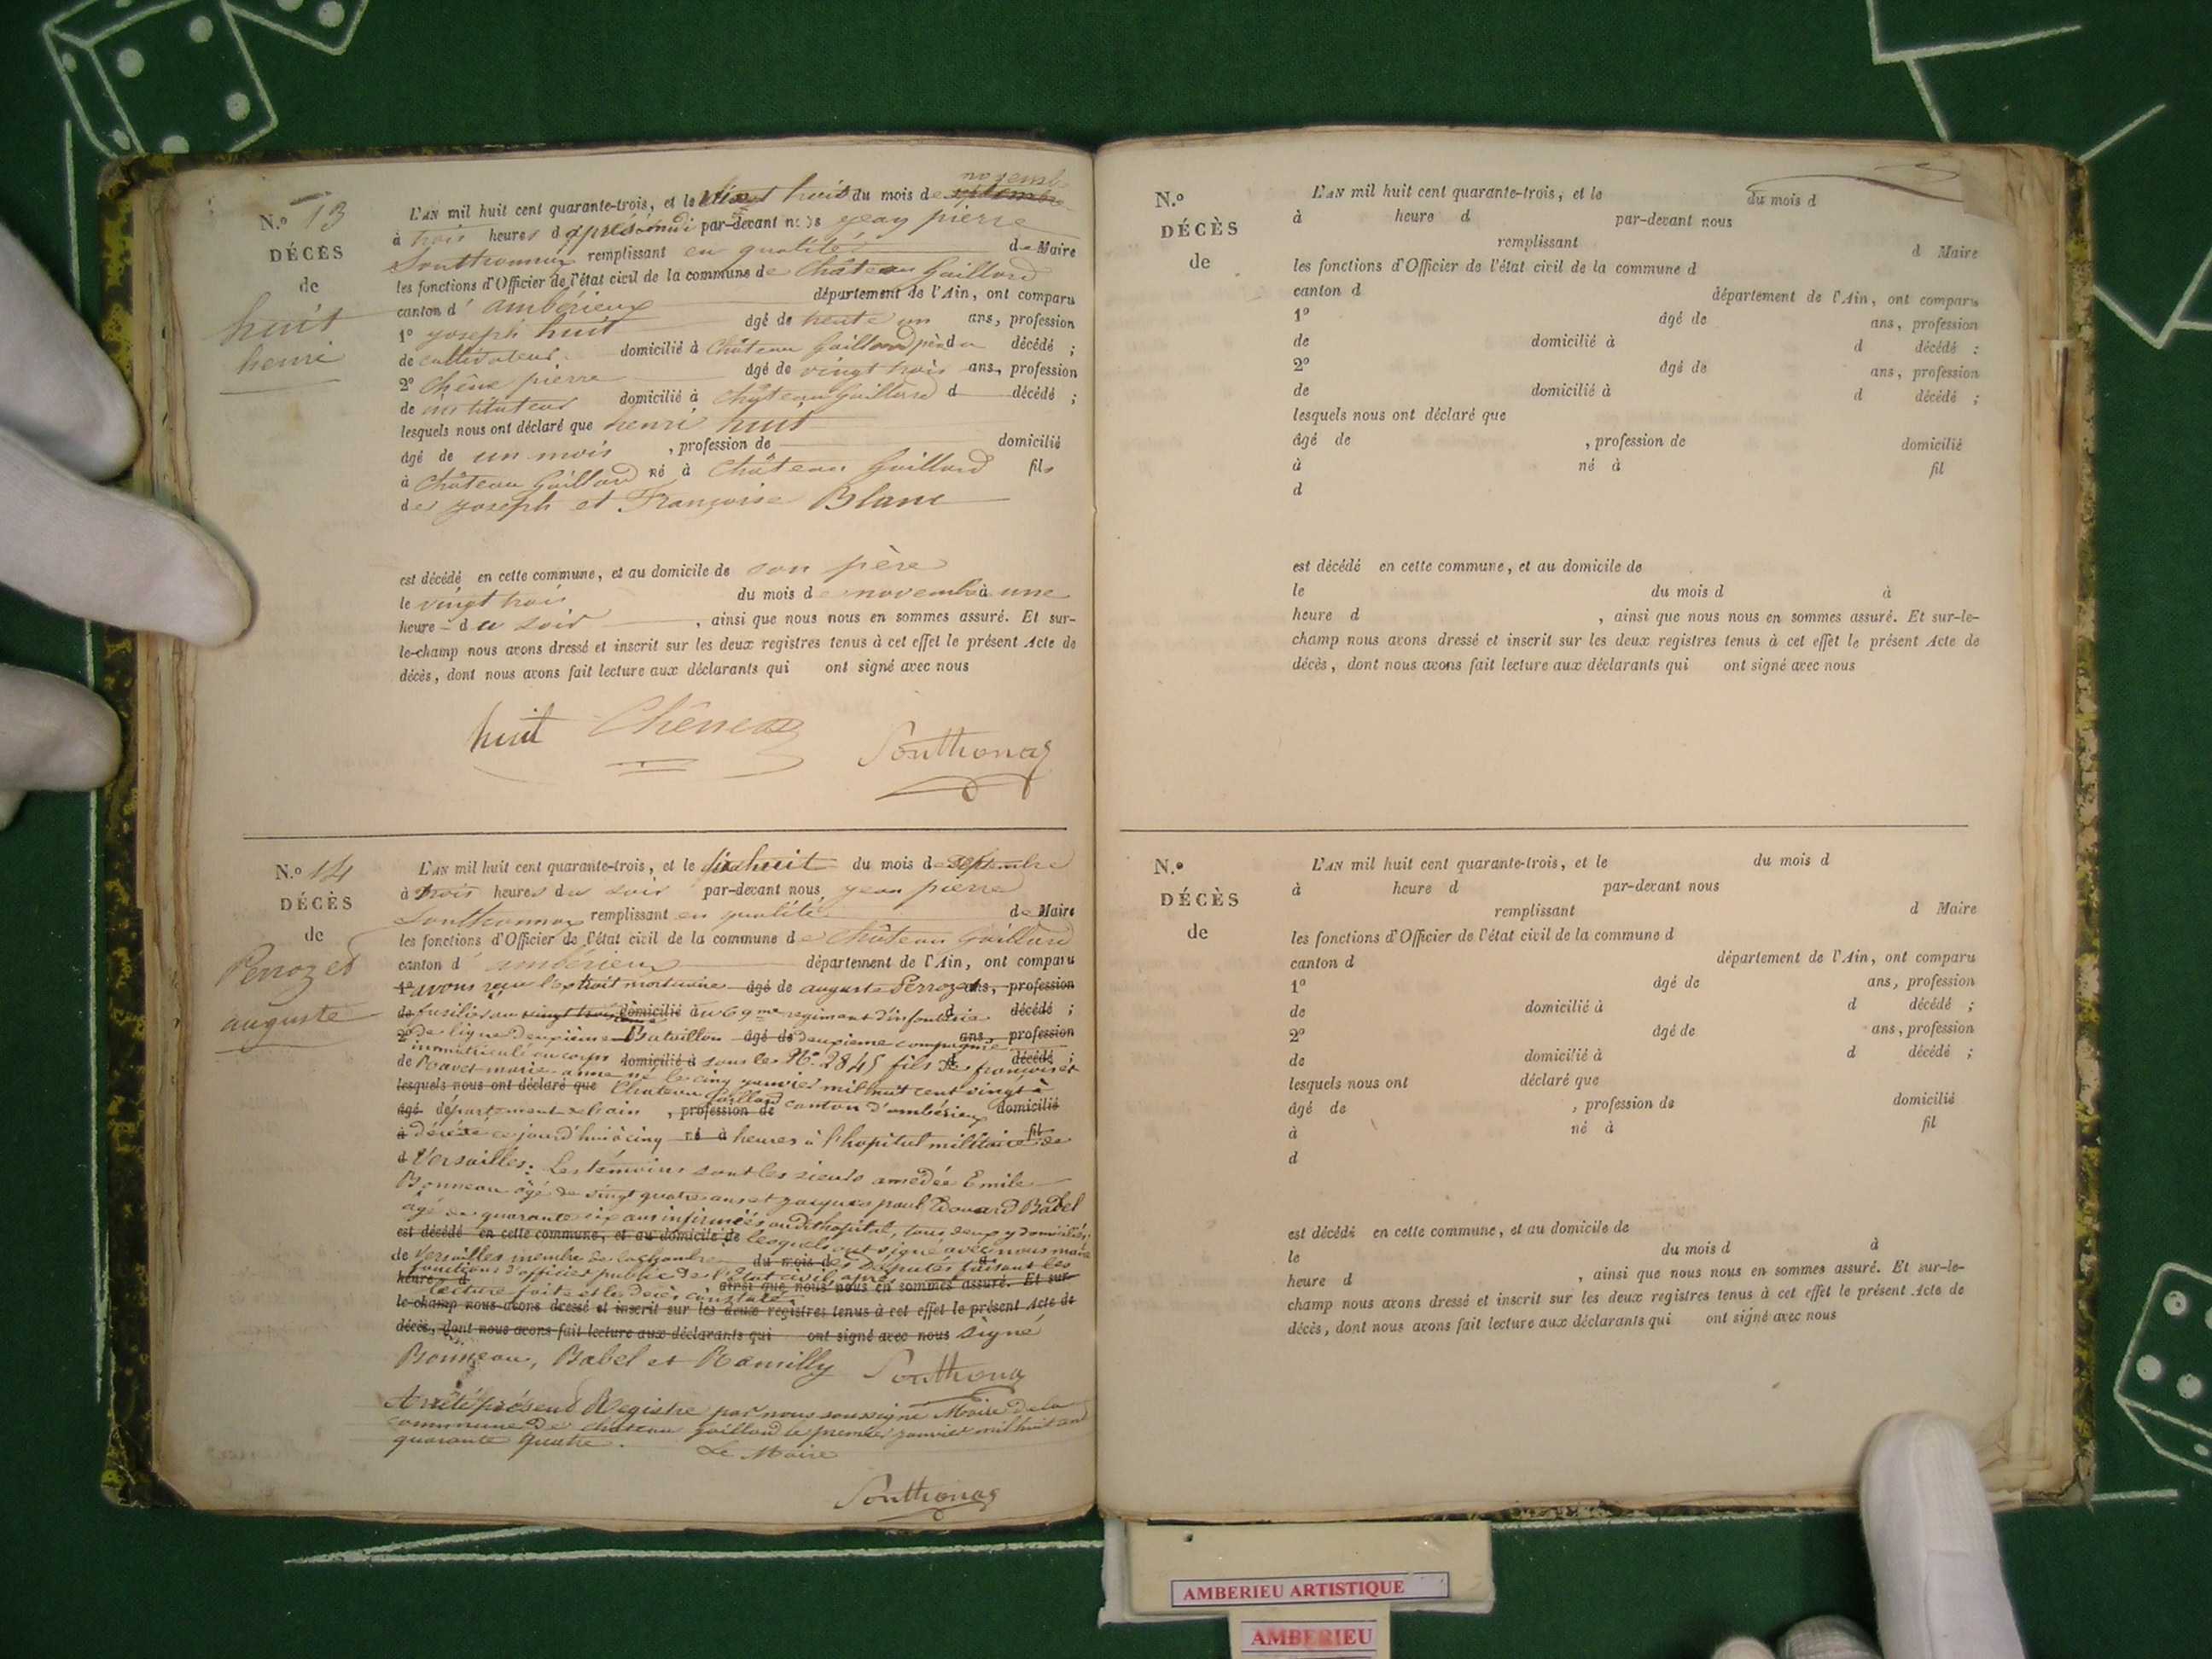 N.º 13
DÉCÈS
de
huit
henri
L'AN mil huit cent quarante-trois, et le huit du mois de septembre novemb
à trois heures d après midi par-devant nous jean pierre
Southonnax remplissant en qualité de Maire
les fonctions d'Officier de l'état civil de la commune de Château Gaillard
canton d' ambérieux département de l'Ain, ont comparu
1º joseph huit âgé de trente un ans, profession
de cultivateur domicilié à Château Gaillard père du décédé ;
2º Chêne pierre âgé de vingt trois ans, profession
de instituteur domicilié à Château Gaillard d décédé ;
lesquels nous ont déclaré que henri huit
âgé de un mois , profession de domicilié
à Château Gaillard né à Château Gaillard fils
de joseph et Françoise Blanc
est décédé en cette commune, et au domicile de son père
le vingt trois du mois de novembre à une
heure du soir , ainsi que nous nous en sommes assuré. Et sur-
le-champ nous avons dressé et inscrit sur les deux registres tenus à cet effet le présent Acte de
décès, dont nous avons fait lecture aux déclarants qui ont signé avec nous
huit Chêne Southonax
N.º 14
DÉCÈS
de
Perrozet
auguste
L'AN mil huit cent quarante-trois, et le dix huit du mois de septembre
à trois heures du soir par-devant nous jean pierre
Southonnax remplissant en qualité de Maire
les fonctions d'Officier de l'état civil de la commune de Château Gaillard
canton d' ambérieux département de l'Ain, ont comparu
1º avons reçu l'extrait mortuaire âgé de auguste Perrozet ans, profession
de fusilier au vingt trois domicilié au 69me regiment d'infanterie d décédé ;
2º de ligne deuxième Bataillon âgé de deuxieme compagnie ans, profession
immatriculé au corps
de Ravet marie anne domicilié à sous les Nº 2845 fils de françois et d décédé ;
né le cinq janvier mil huit cent vingt à
lesquels nous ont déclaré que Chateau Gaillard
âgé département de l'ain , profession de canton d'ambérieux domicilié
à décédé ce jourd'hui à cinq né à heures à l'hopital militaire fil de
d Versailles. Les témoins sont les sieurs amedée Emile
Bonneau âgé de vingt quatre ans et jacques paul Edouard Babel
âgé de quarante six ans infirmiés au dit hopital, tous deux y domiciliés
est décédé en cette commune, et au domicile de lesquels ont signé avec nous maire
de Versailles membre de la chambre du mois des Députés faisant les à
fonctions d'officier public de l'état civil après
heure d ainsi que nous nous en sommes assuré. Et sur-
lecture faite et le décès constaté
le-champ nous avons dressé et inscrit sur les deux registres tenus à cet effet le présent Acte de
décès, dont nous avons fait lecture aux déclarants qui ont signé avec nous signé
Bonneau, Babel et Remilly Southonax
Arrêté présent Registre par nous soussigné Maire de la
commune de château gaillard le premier janvier mil huit cent
quarante quatre.
Le Maire
Southonax
N.º
DÉCÈS
de
L'AN mil huit cent quarante-trois, et le du mois d
à heure d par-devant nous
remplissant d Maire
les fonctions d'Officier de l'état civil de la commune d
canton d département de l'Ain, ont comparu
1º âgé de ans, profession
de domicilié à d décédé ;
2º âgé de ans, profession
de domicilié à d décédé ;
lesquels nous ont déclaré que
âgé de , profession de domicilié
à né à fil
d
est décédé en cette commune, et au domicile de
le du mois d à
heure d , ainsi que nous nous en sommes assuré. Et sur-le-
champ nous avons dressé et inscrit sur les deux registres tenus à cet effet le présent Acte de
décès, dont nous avons fait lecture aux déclarants qui ont signé avec nous
N.º
DÉCÈS
de
L'AN mil huit cent quarante-trois, et le du mois d
à heure d par-devant nous
remplissant d Maire
les fonctions d'Officier de l'état civil de la commune d
canton d département de l'Ain, ont comparu
1º âgé de ans, profession
de domicilié à d décédé ;
2º âgé de ans, profession
de domicilié à d décédé ;
lesquels nous ont déclaré que
âgé de , profession de domicilié
à né à fil
d
est décédé en cette commune, et au domicile de
le du mois d à
heure d , ainsi que nous nous en sommes assuré. Et sur-le-
champ nous avons dressé et inscrit sur les deux registres tenus à cet effet le présent Acte de
décès, dont nous avons fait lecture aux déclarants qui ont signé avec nous
AMBERIEU ARTISTIQUE
AMBERIEU